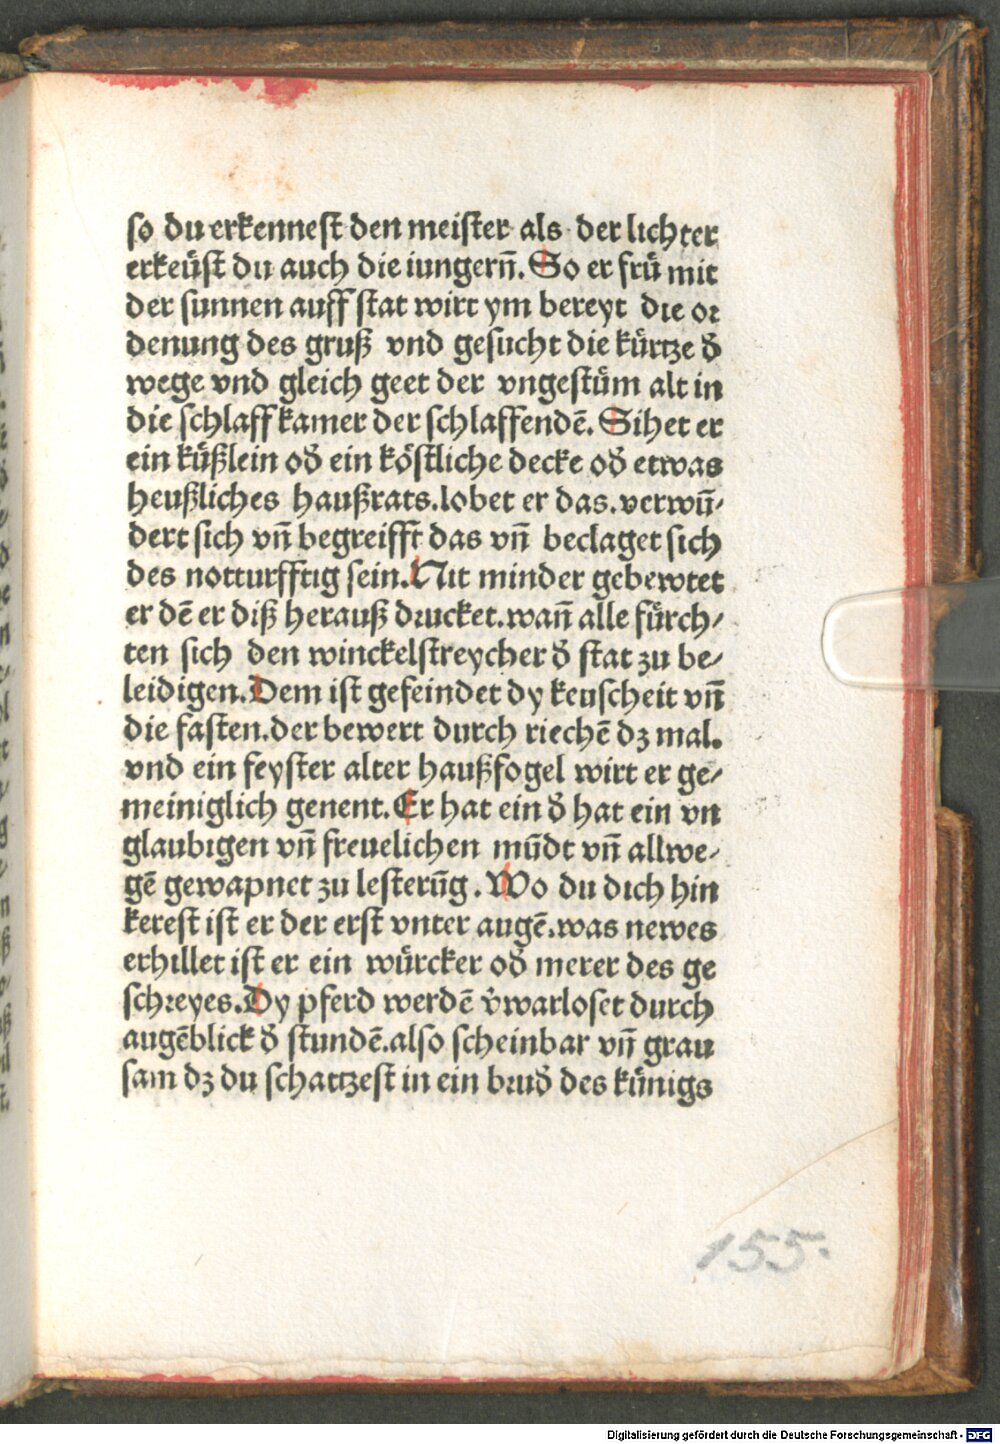 so du erkennest den meister als der lichter
erkeüst du auch die iungern̄. So er frü mit
der sunnen auff stat wirt ym bereyt die or
denung des gruß vnd gesucht die kürtze đ
wege vnd gleich geet der vngestüm alt in
die schlaff kamer der schlaffendē. Sihet er
ein küßlein ođ ein köstliche decke ođ etwas
heußliches haußrats.lobet er das.verwū⸗
dert sich vn̄ begreifft das vn̄ beclaget sich
des notturfftig sein. Nit minder gebewtet
er dē er diß herauß drucket.wan̄ alle fürch⸗
ten sich den winckelstreycher đ stat zu be⸗
leidigen. Dem ist gefeindet dy keuscheit vn̄
die fasten.der bewert durch riechē dz mal.
vnd ein feyster alter haußfogel wirt er ge⸗
meiniglich genent. Er hat ein đ hat ein vn
glaubigen vn̄ freuelichen mūdt vn̄ allwe⸗
gē gewapnet zu lesterūg. Wo du dich hin
kerest ist er der erst vnter augē.was newes
erhillet ist er ein würcker ođ merer des ge
schreyes. Dy pferd werdē v̓warloset durch
augēblick đ stundē.also scheinbar vn̄ grau
sam dz du schattzest in ein bruđ des künigs
155.
Digitalisierung gefördert durch die Deutsche Forschungsgemeinschaft - DFG